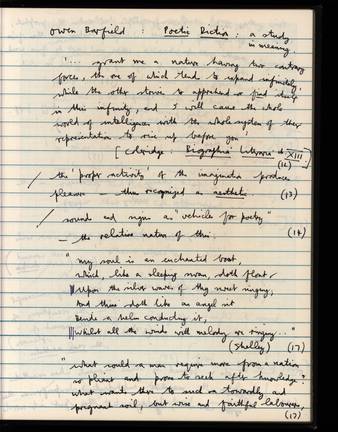 Owen Barfield : Poetic Diction : a study
in meaning.
'... grant me a nature having two contrary
forces, the one of which tends to expand infinitely,
while the other strives to apprehend or find itself
in this infinity, and I will cause the whole
world of intelligences with the whole system of their
representation to rise up before you'
[Coleridge : Biographia Literaria ch XIII]
(12)
the 'proper activity of the imagination produces
pleasure — thus recognized as aesthetic. (13)
sound and rhythm as "vehicle for poetry"
— the relative nature of this. (14)
"my soul is an enchanted boat,
which, like a sleeping swan, doth float
Upon the silver waves of thy sweet singing,
And thine doth like an angel sit
Beside a helm conducting it,
Whilst all the winds with melody are ringing.."
(Shelley) (17)
"what could a man require more from a nation
so pliant and prone to seek after knowledge?
what wants there to such a towardly and
pregnant soil, but wise and faithful labourers,
(17)